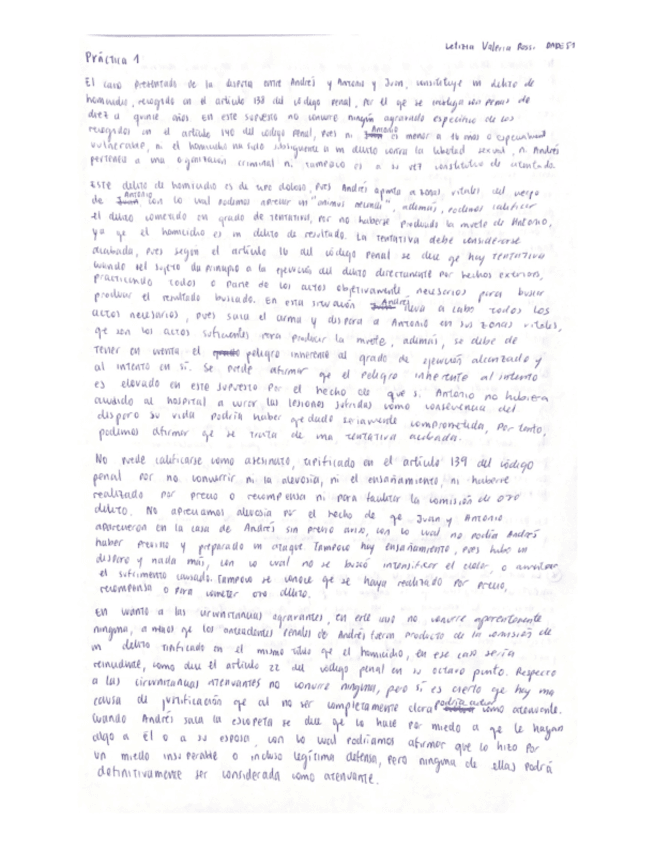 Letizia Valeria Rossi DADE 51
Práctica 1
El caso presentado de la disputa entre Andrés y Antonio y Juan, constituye un delito de
homicidio, recogido en el artículo 138 del código penal, por el qe se castiga con penas de
diez a quince años. En este supuesto no concurre ningún agravado específico de los
recogidos en el artículo 140 del código penal, pues ni Antonio es menor a 16 años o especialmente
vulnerable, ni el homicidio ha sido subsiguiente a un delito contra la libertad sexual, ni Andrés
pertenece a una organización criminal ni tampoco es a su vez constitutivo de atentado.
Este delito de homicidio es de tipo doloso, pues Andrés apunta a zonas vitales del cuerpo
de Antonio con lo cual podemos apreciar un "animus necandi", además, podemos calificar
el delito cometido en grado de tentativa, por no haberse producido la muerte de Antonio,
ya qe el homicidio es un delito de resultado. La tentativa debe considerarse
acabada, pues según el artículo 16 del código penal se dice qe hay tentativa
cuando el sujeto da principio a la ejecución del delito directamente por hechos exteriores,
practicando todos o parte de los actos objetivamente necesarios para buscar
producir el resultado buscado. En esta situación Andrés lleva a cabo todos los
actos necesarios, pues saca el arma y dispara a Antonio en sus zonas vitales,
qe son los actos suficientes para producir la muerte, además, se debe de
tener en cuenta el peligro inherente al grado de ejecución alcanzado y
al intento en sí. Se puede afirmar qe el peligro inherente al intento
es elevado en este supuesto por el hecho de que si Antonio no hubiera
acudido al hospital a curar las lesiones sufridas como consecuencia del
disparo su vida podría haber quedado seriamente comprometida, Por tanto,
podemos afirmar qe se trata de una tentativa acabada.
No puede calificarse como asesinato, tipificado en el artículo 139 del código
penal por no concurrir ni la alevosía, ni el ensañamiento, ni haberse
realizado por precio o recompensa ni para facilitar la comisión de otro
delito. No apreciamos alevosía por el hecho de qe Juan y Antonio
aparecieron en la casa de Andrés sin previo aviso, con lo cual no podía Andrés
haber previsto y preparado un ataque. Tampoco hay ensañamiento, pues hubo un
disparo y nada más, con lo cual no se buscó intensificar el dolor, o aumentar
el sufrimiento causado. Tampoco se conoce qe se haya realizado por precio,
recompensa o para cometer otro delito.
En cuanto a las circunstancias agravantes, en este caso no concurre aparentemente
ninguna, a menos qe los antecedentes penales de Andrés fueran producto de la comisión de
un delito tipificado en el mismo título que el homicidio, en ese caso sería
reincidente, como dice el artículo 22 del código penal en su octavo punto. Respecto
a las circunstancias atenuantes no concurre ninguna, pero sí es cierto qe hay una
causa de justificación qe al no ser completamente clara podría actuar como atenuante.
Cuando Andrés saca la escopeta se dice qe lo hace por miedo a qe le hagan
algo a él o a su esposa, con lo cual podríamos afirmar que lo hizo por
un miedo insuperable o incluso legítima defensa, pero ninguna de ellas podrá
definitivamente ser considerada como atenuante.